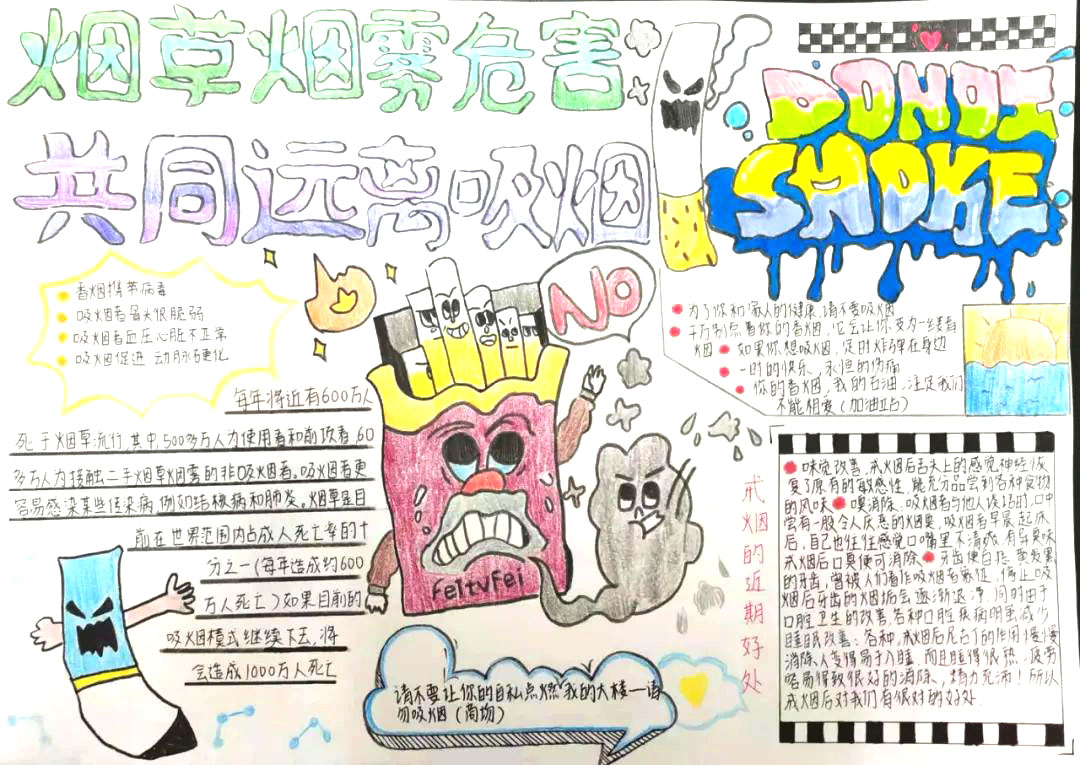 烟草烟雾危害
共同远离吸烟
DONOT
SMOKE
NO
香烟携带病毒
吸烟者骨头很脆弱
吸烟者血压心脏不正常
吸烟促进 动脉硬化
每年将近有600万人
死于烟草流行,其中,500多万人为使用者和前 60
多万人为接触二手烟草烟雾的非吸烟者。吸烟者更
容易感染某些传染病,例如结核病和肺炎。烟草是目
前在世界范围内占成人死亡率的十
分之一(每年造成约600
万人死亡)如果目前的
吸烟模式继续下去,将
会造成1000万人死亡
FeItvFei
请不要让你的自私点燃 我的大楼——请
勿吸烟(商场)
为了你和家人的健康,请不要吸烟
千万别点着你的香烟,它会让你变为一缕青
烟 如果你想吸烟,定时炸弹在身边
一时的快乐,永恒的伤痛
你的香烟,我的石油,注定我们
不能相爱(加油站)
戒烟的近期好处
味觉改善,戒烟后舌头上的感觉神经恢
复了原有的敏感性,能充分品尝到各种食物
的风味 嗅消除,吸烟者与他人谈话时,口中
会有一股令人厌恶的烟臭,吸烟者早晨起床
后,自己也往往感觉口嘴里不清爽,有异臭味
戒烟后口臭便可消除 牙齿便白
的牙齿,曾被人们看作吸烟 停止吸
烟后牙齿的烟垢会逐渐退净,同时由于
口腔卫生的改善,各种口腔疾病明显减少
睡眠改善:各种,戒烟后尼古丁的作用慢慢
消除,人变得易于入睡,而且睡得很熟,疲劳
容易得到很好的消除,精力充沛!所以
戒烟后对我们有很对的好处